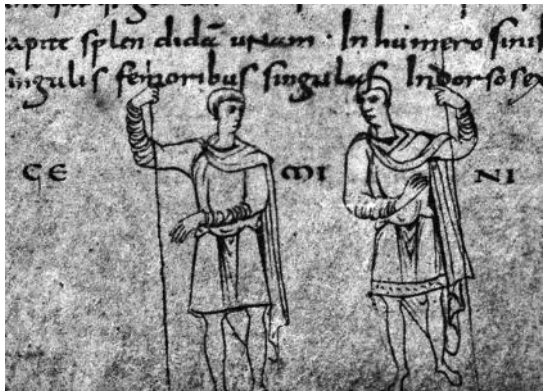 capite splen didā unam · In humero sinis
singulis femoribus singulas In dorso sex
GE MI NI